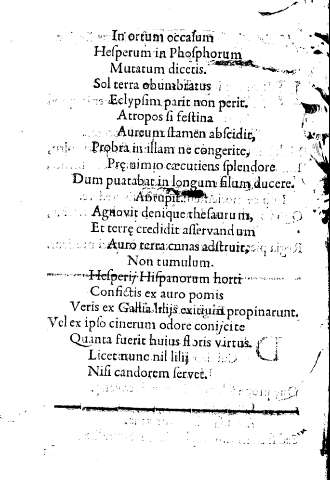 In ortum occasum
Hesperum in Phosphorum
Mutatum dicetis.
Sol terra obumbratus
Eclypsim parit non perit.
Atropos si festina
Aureum stamen abscidit,
Probra in illam ne congerite,
Pre nimio cæcutiens splendore
Dum putabat in longum filum ducere.
Abrupit.
Agnovit denique thesaurum,
Et terrę credidit asservandum
Auro terra cunas adstruit,
Non tumulum.
Hesperij Hispanorum horti
Confictis ex auro pomis
Veris ex Gallia lilijs exitium propinarunt.
Vel ex ipso cinerum odore conijcite
Quanta fuerit huius floris virtus.
Licet nunc nil lilij
Nisi candorem servet.